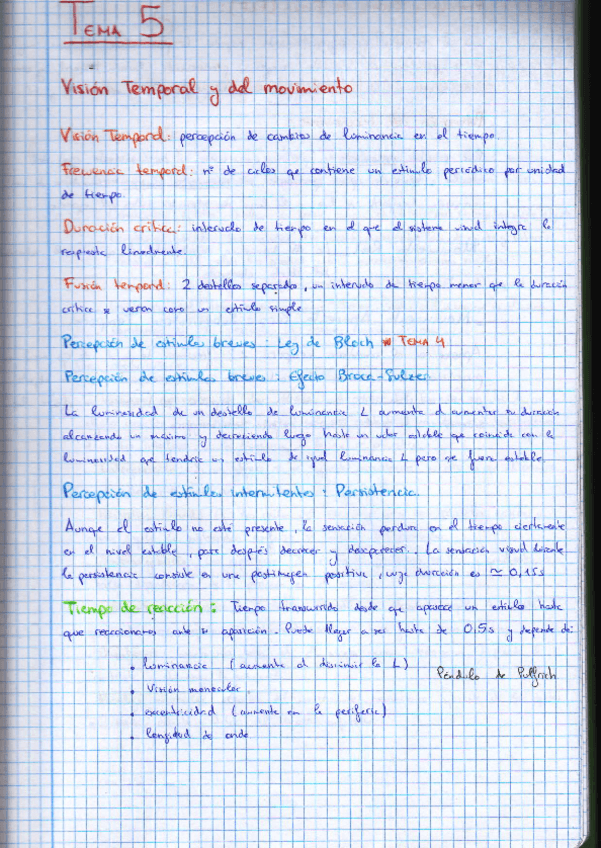 TEMA 5
Visión Temporal y del movimiento
Visión Temporal: percepción de cambios de luminancia en el tiempo.
Frecuencia temporal: nº de ciclos qe contiene un estímulo periódico por unidad
de tiempo.
Duración crítica: intervalo de tiempo en el que el sistema visual integra la
respuesta linealmente.
Fusión temporal: 2 destellos separados, un intervalo de tiempo menor que la duración
crítica se verán como un estímulo simple
Percepción de estímulos breves: Ley de Bloch * TEMA 4
Percepción de estímulos breves: Efecto Broca-Sulzer
La luminosidad de un destello de luminancia L aumenta al aumentar su duración
alcanzando un máximo y decreciendo luego hasta un valor estable que coincide con la
luminosidad qe tendría un estímulo de igual luminancia L pero qe fuera estable.
Percepción de estímulos intermitentes: Persistencia.
Aunqe el estímulo no esté presente, la sensación perdura en el tiempo
en el nivel estable, para después decrecer y desaparecer. La sensación visual durante
la persistencia consiste en una postimagen positiva, cuya duración es ≃ 0,15s
Tiempo de reacción: Tiempo transcurrido desde qe aparece un estímulo hasta
que reaccionamos ante su aparición. Puede llegar a ser hasta de 0.5s y depende de:
• luminancia (aumenta al disminuir la L)
Péndulo de Pulfrich
• Visión monocular
• excentricidad (aumenta en la periferia)
• longitud de onda